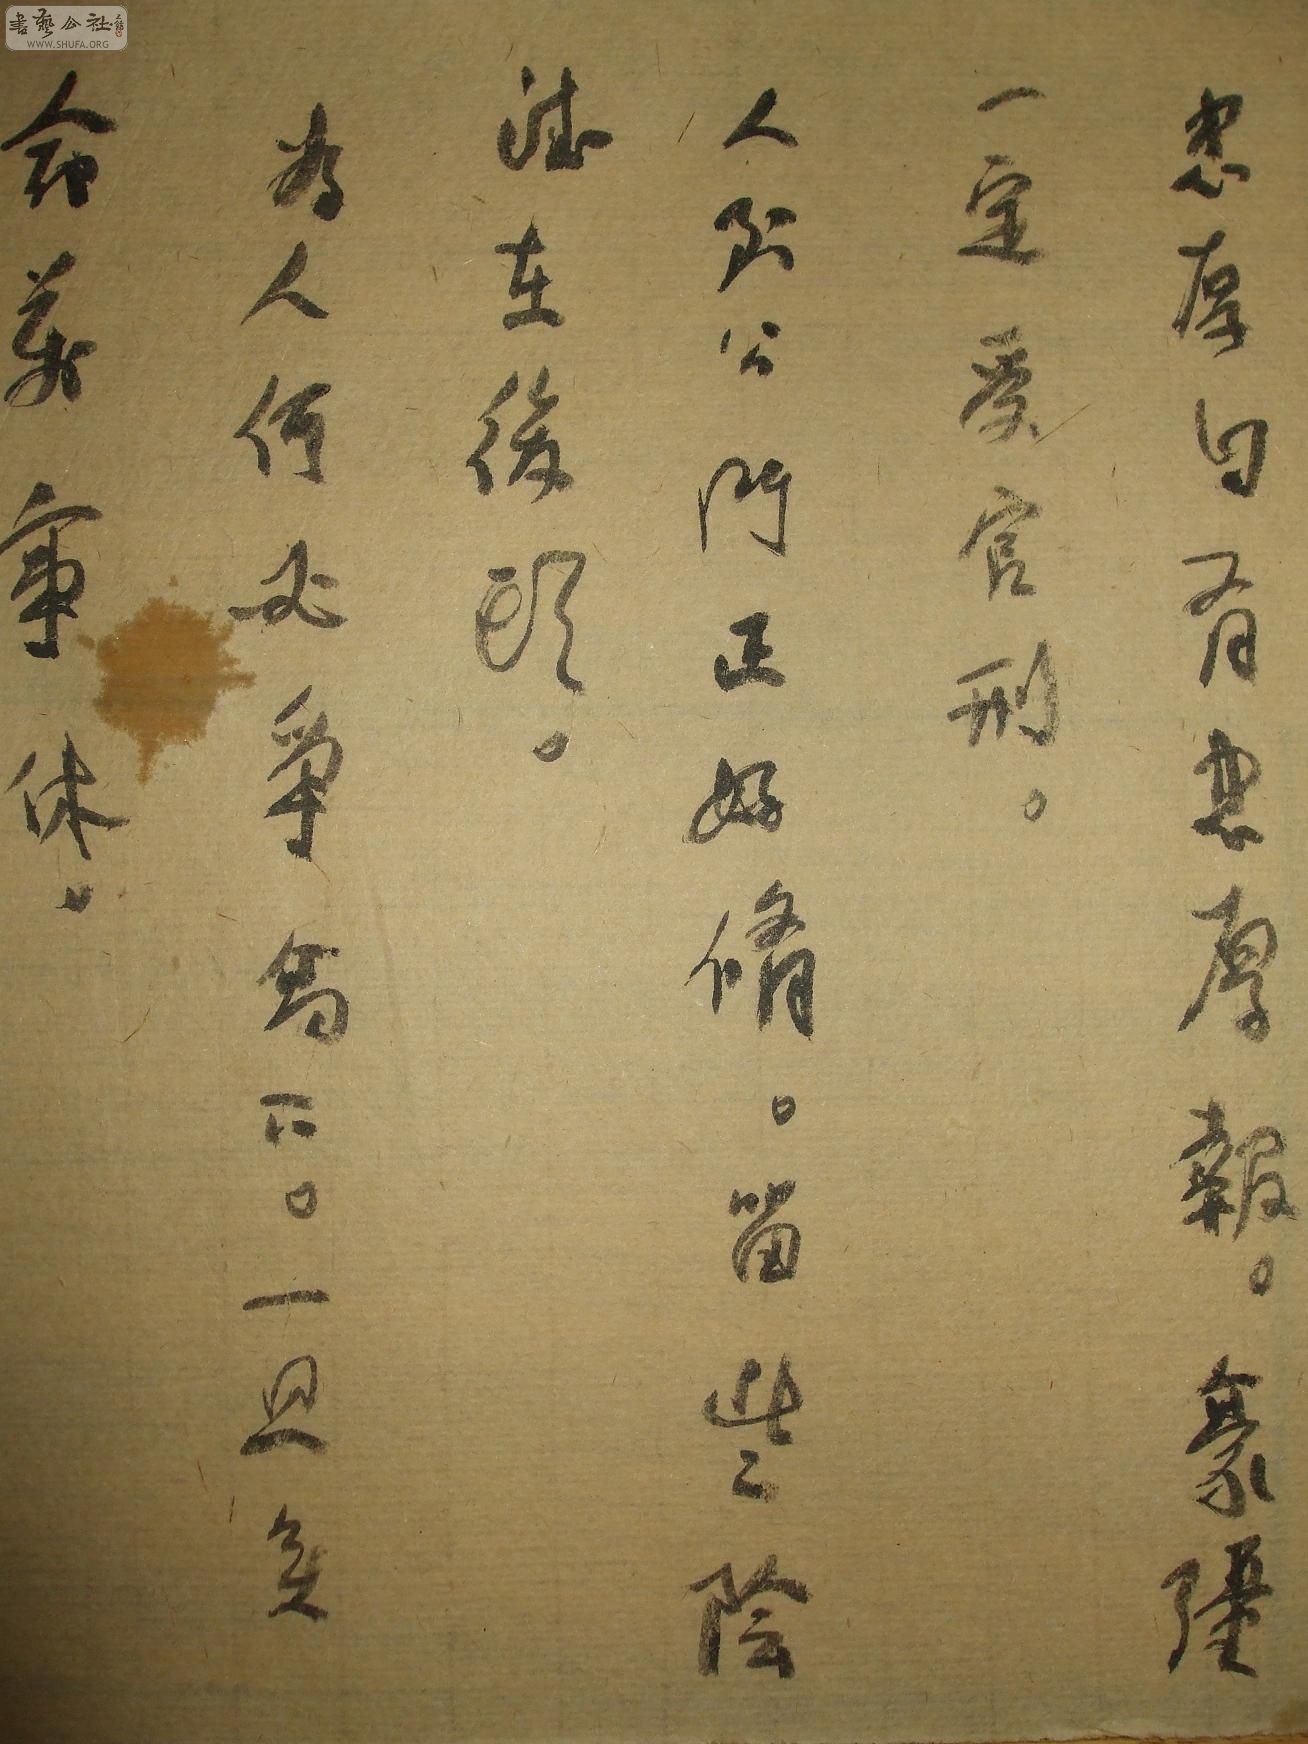 忠厚自有忠厚報。豪強
一定受官刑。
人到公門正好修。留些陰
德在後頭。
為人何必爭高下。一旦無
命萬事休。
書藝公社
WWW.SHUFA.ORG